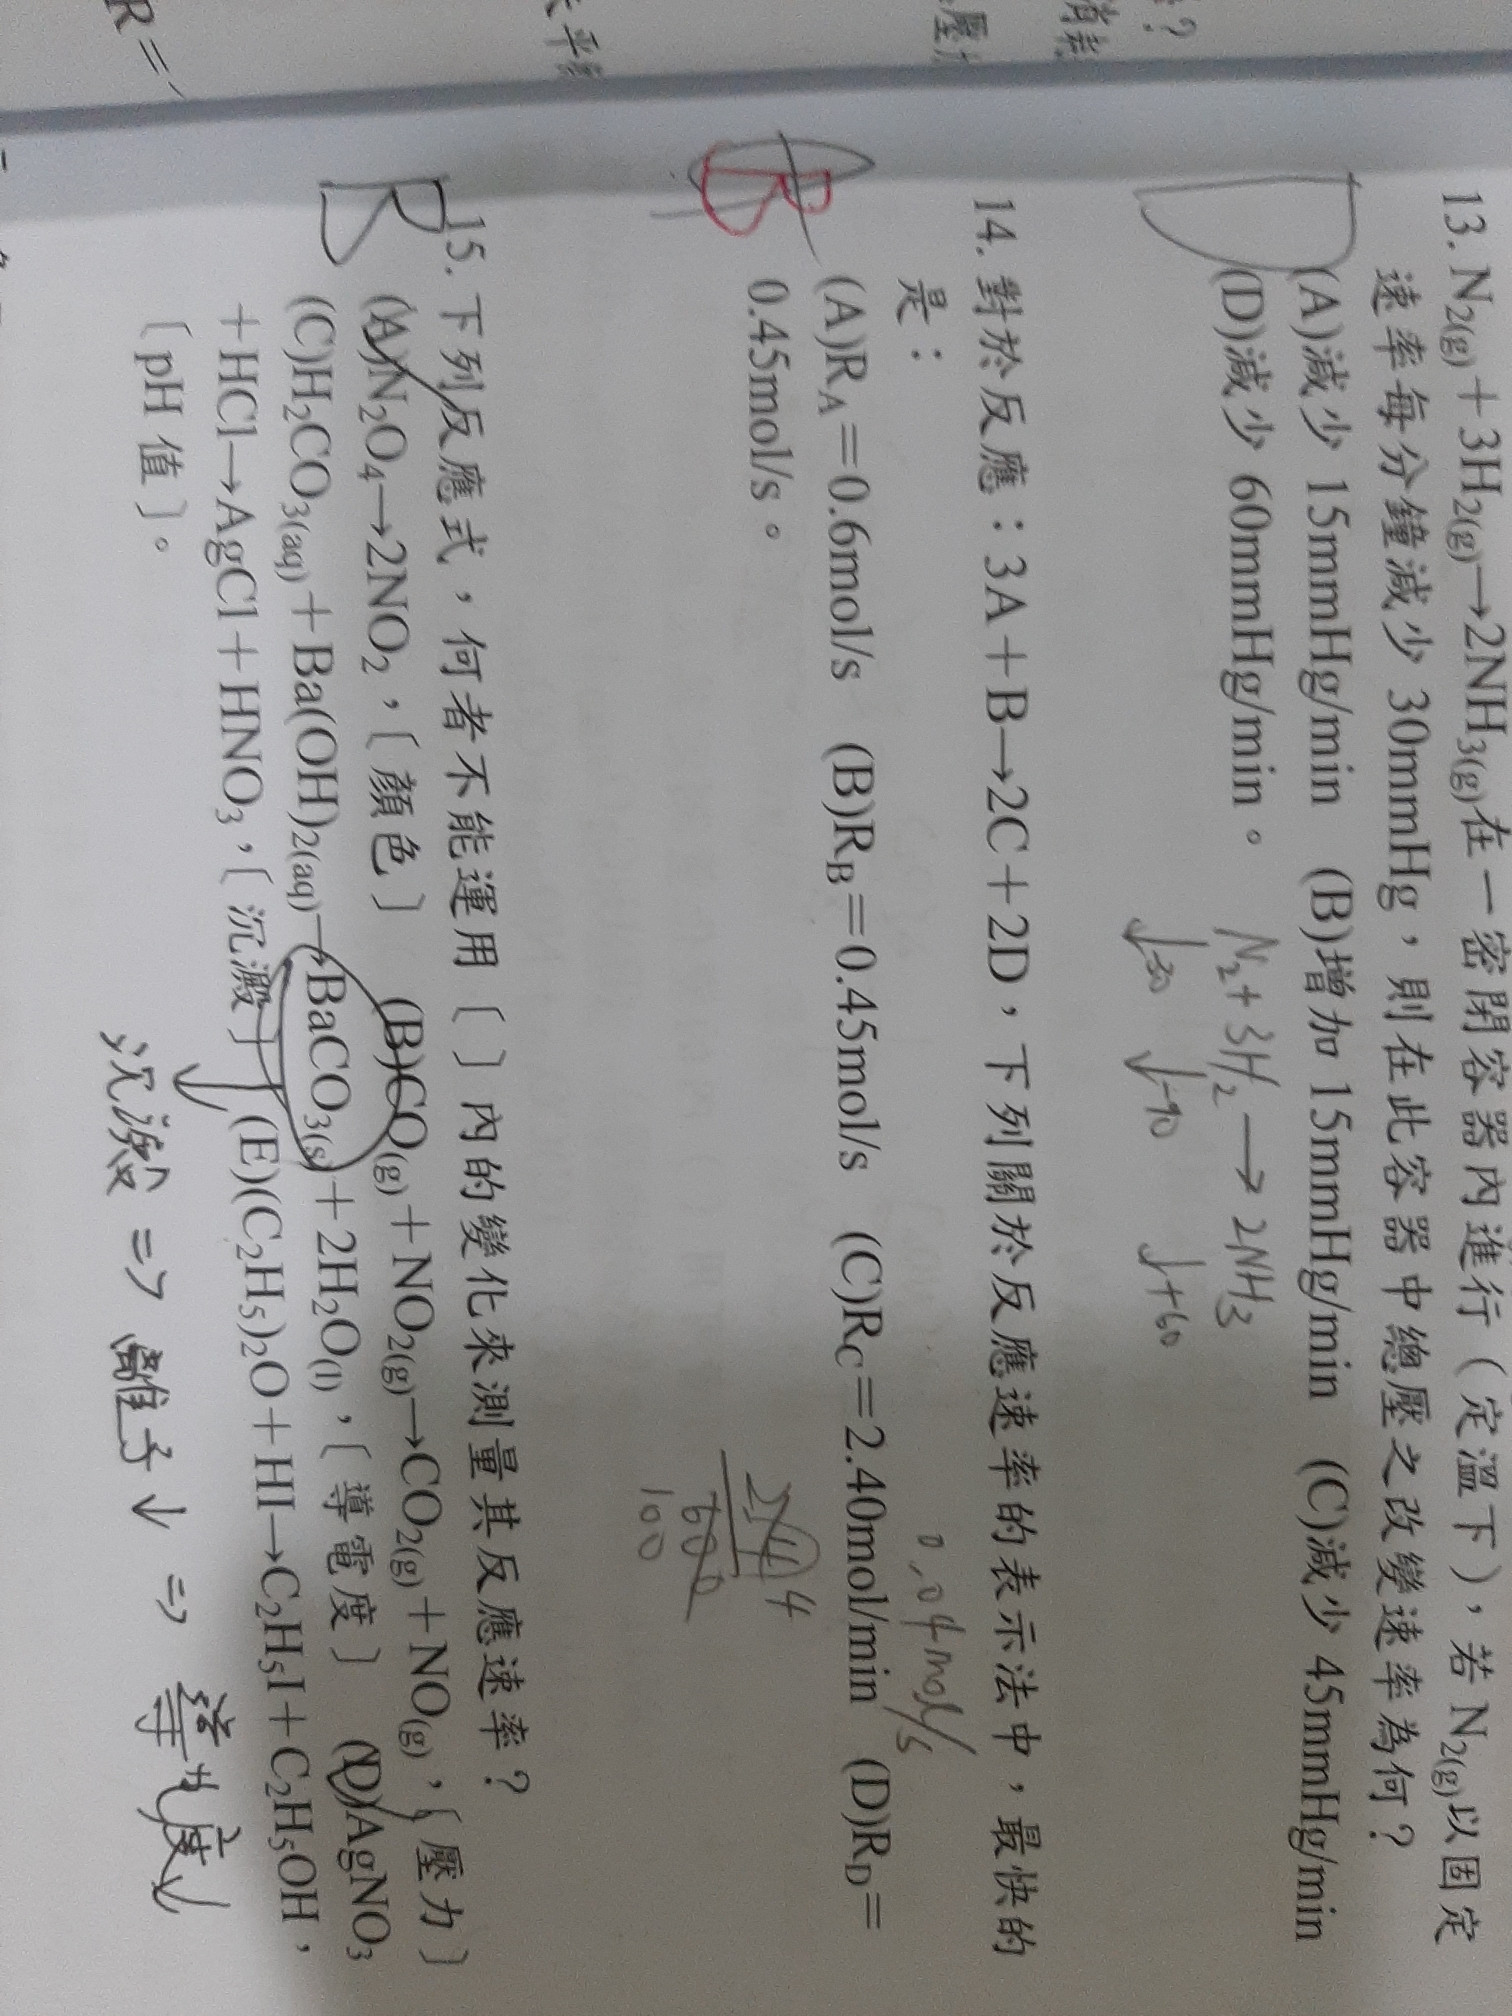 13. N2(g)＋3H2(g)→2NH3(g)在一密閉容器內進行（定溫下），若 N2(g)以固定
速率每分鐘減少 30mmHg，則在此容器中總壓之改變速率為何？
(A)減少 15mmHg/min (B)增加 15mmHg/min (C)減少 45mmHg/min
(D)減少 60mmHg/min。
D
N2+3H2→2NH3
↓-30 ↓-90 ↓+60
14. 對於反應：3A＋B→2C＋2D，下列關於反應速率的表示法中，最快的
是：
0.04mol/s
(A)RA＝0.6mol/s (B)RB＝0.45mol/s (C)RC＝2.40mol/min (D)RD＝
0.45mol/s。
B
4
600
100
15. 下列反應式，何者不能運用〔 〕內的變化來測量其反應速率？
B
(A)N2O4→2NO2，〔顏色〕 (B)CO(g)＋NO2(g)→CO2(g)＋NO(g)，〔壓力〕
(C)H2CO3(aq)＋Ba(OH)2(aq)→BaCO3(s)＋2H2O(l)，〔導電度〕 (D)AgNO3
＋HCl→AgCl＋HNO3，〔沉澱〕 (E)(C2H5)2O＋HI→C2H5I＋C2H5OH，
〔pH 值〕。
沉澱 ⇒ 離子↓ ⇒ 導電度↓
R＝